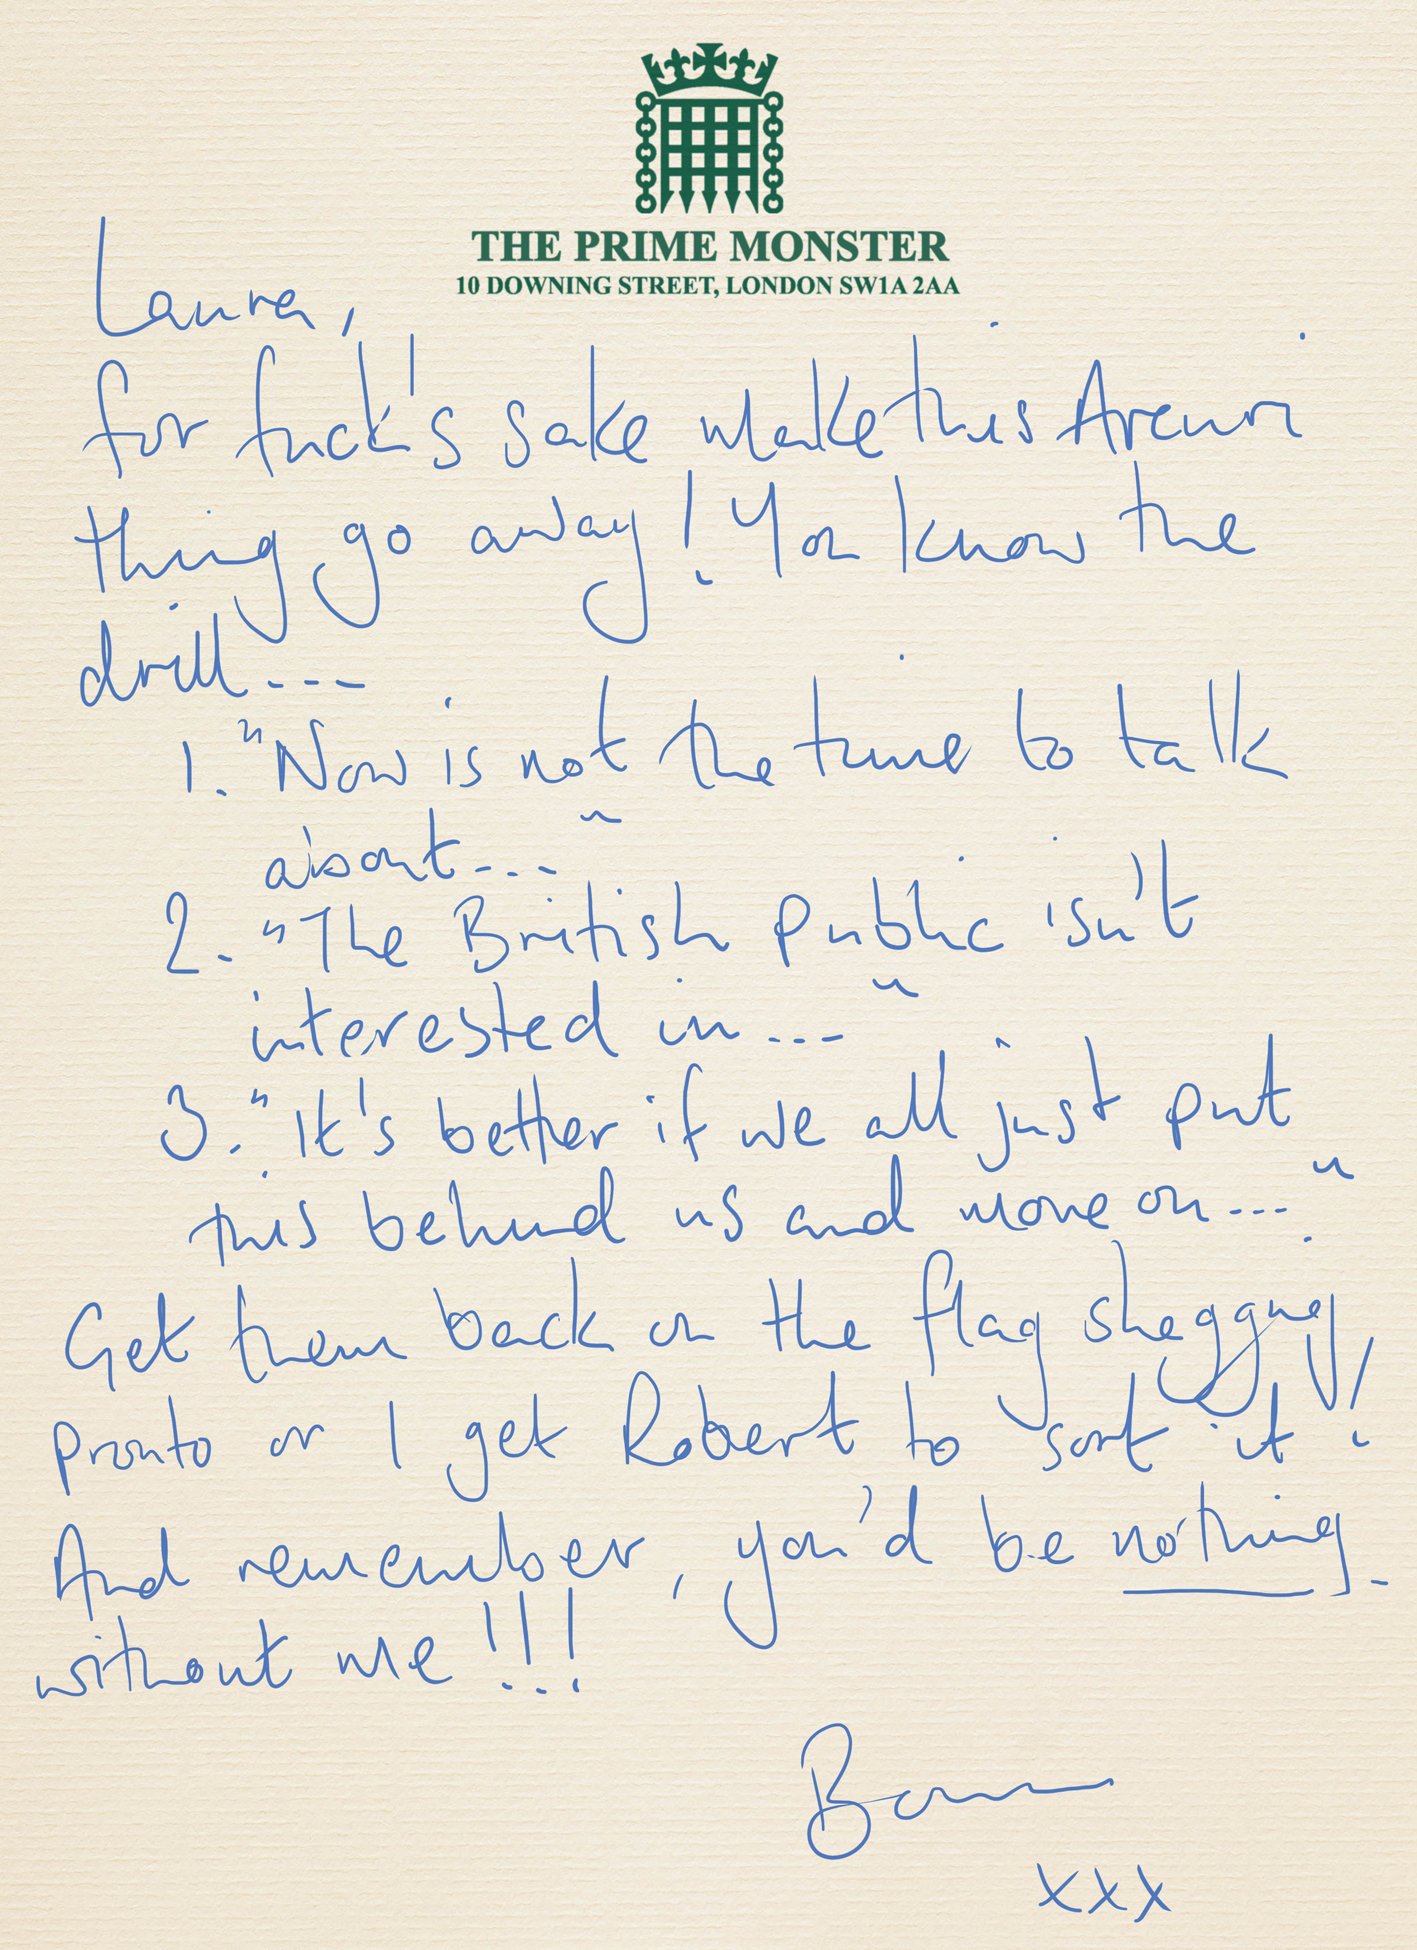 THE PRIME MONSTER
10 DOWNING STREET, LONDON SW1A 2AA
Laura,
for fuck's sake make this Arcuri
thing go away! You know the
drill...
1. "Now is not the time to talk
about..."
2. "The British public isn't
interested in..."
3. "It's better if we all just put
this behind us and move on..."
Get them back on the flag shagging
pronto or I get Robert to sort it!
And remember, you'd be nothing
without me!!!
Boris
xxx